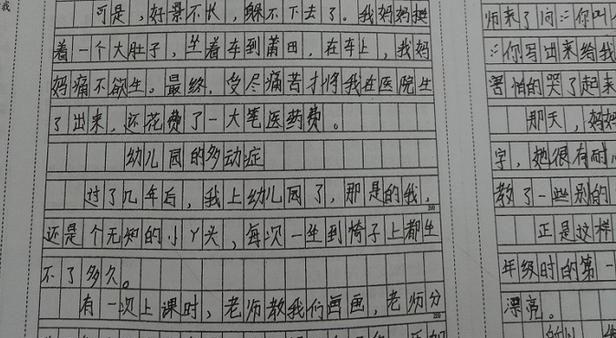 可是，好景不长，躲不下去了。我妈妈挺
着一个大肚子，坐着车到莆田，在车上，我妈
妈痛不欲生。最终，受尽痛苦才将我在医院生
了出来，还花费了一大笔医药费。
幼儿园的多动症
过了几年后，我上幼儿园了，那是的我，
还是个无知的小丫头，每次一坐到椅子上都坐
不了多久。
有一次上课时，老师教我们画画，老师分
师来了问："你叫
："你写出来给我
害怕的哭了起来
那天，妈妈
字，她很有耐心
教了一些别的
正是这样
年级时的第一
漂亮。
我